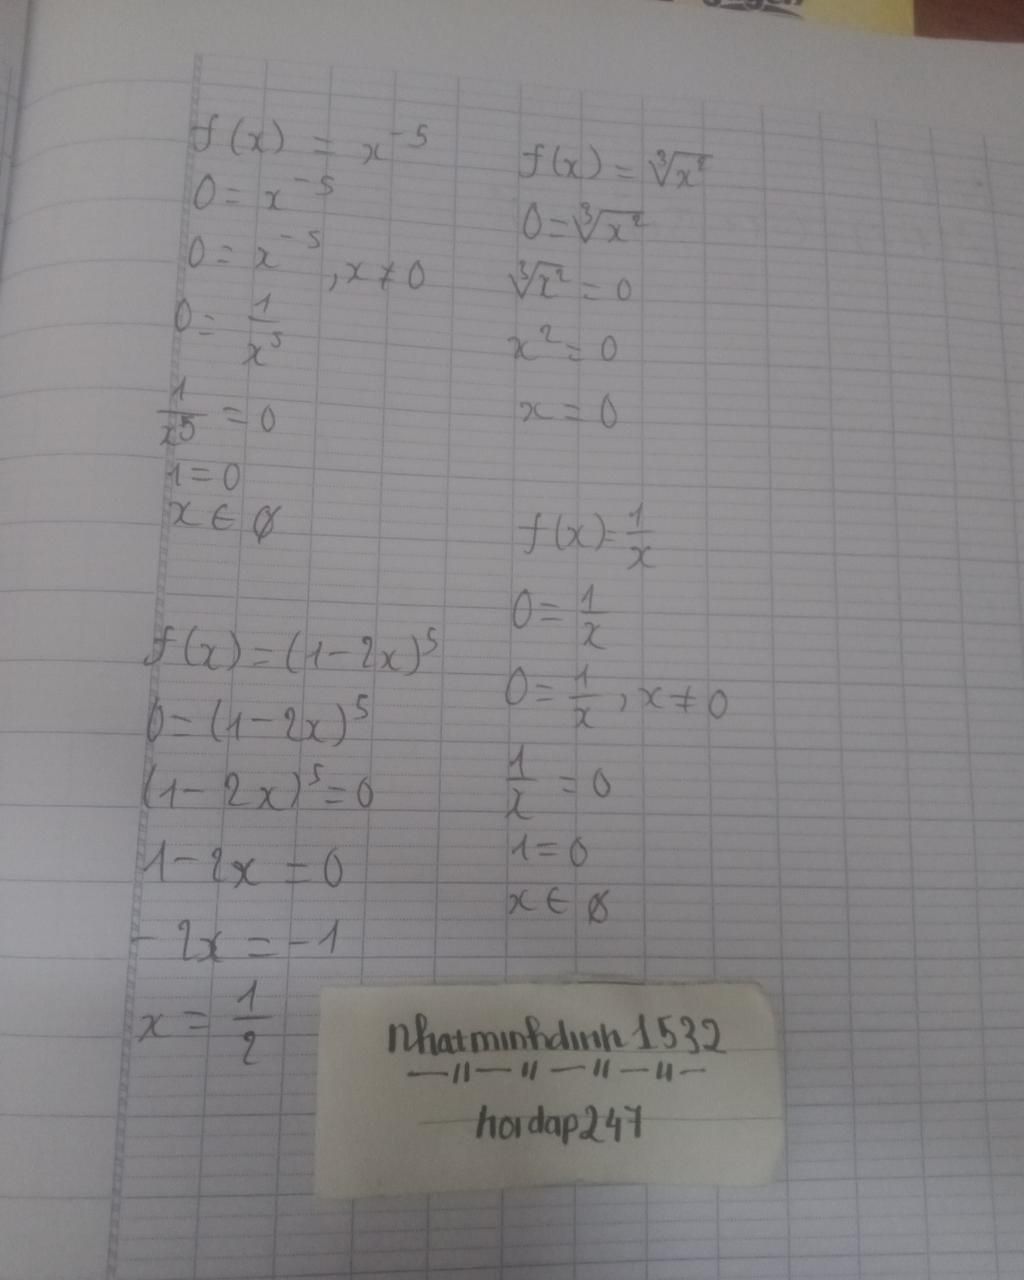 f(x) = x⁻⁵
0 = x⁻⁵
0 = x⁻⁵, x ≠ 0
0 = 1/x⁵
1/x⁵ = 0
1 = 0
x ∈ ∅
f(x) = (1-2x)⁵
0 = (1-2x)⁵
(1-2x)⁵ = 0
1-2x = 0
-2x = -1
x = 1/2
f(x) = ∛x²
0 = ∛x²
∛x² = 0
x² = 0
x = 0
f(x) = 1/x
0 = 1/x
0 = 1/x, x ≠ 0
1/x = 0
1 = 0
x ∈ ∅
nhatminhdinh1532
hoidap247